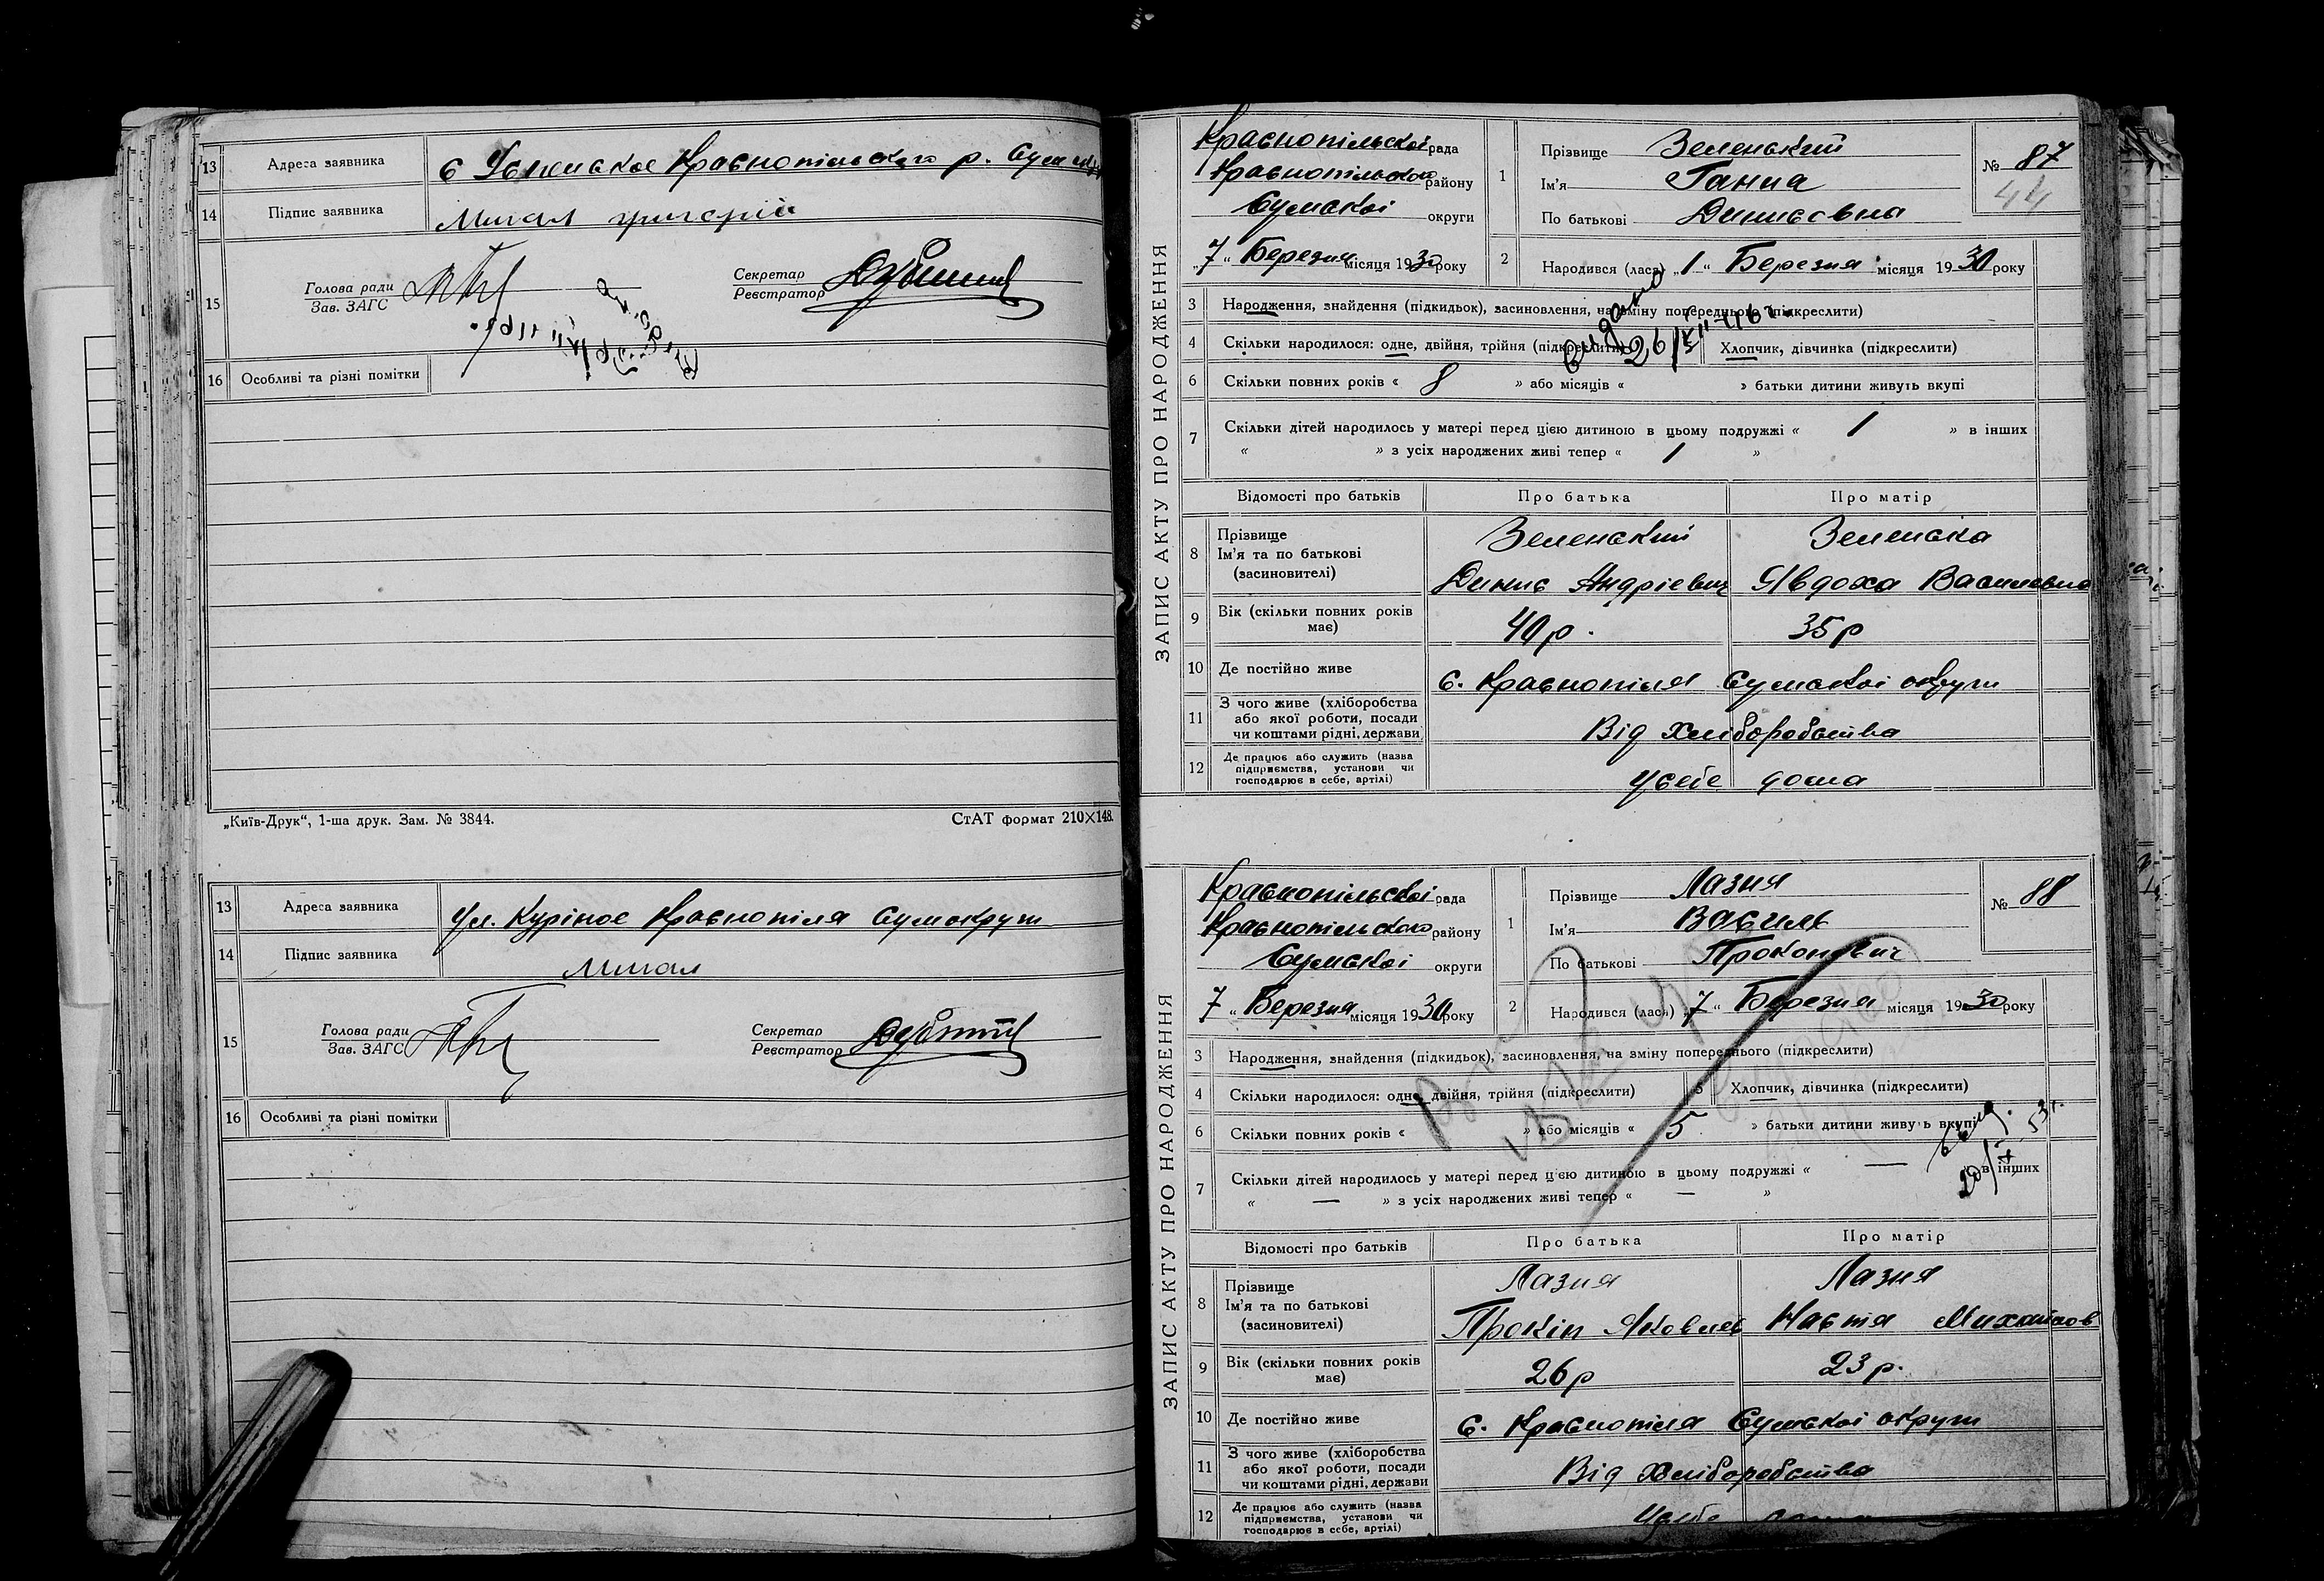 13 Адреса заявника с Успенское Краснопільского р.
14 Підпис заявника
15 Голова ради
Зав. ЗАГС
Секретар
Реєстратор
16 Особливі та різні помітки
„Київ-Друк“, 1-ша друк. Зам. № 3844. СтАТ формат 210×148.
13 Адреса заявника Ул. Курінос Краснопіля Сумокруги
14 Підпис заявника
15 Голова ради
Зав. ЗАГС
Секретар
Реєстратор
16 Особливі та різні помітки
ЗАПИС АКТУ ПРО НАРОДЖЕННЯ
Краснопільскоі рада
Краснопільского району
Сумскоі округи
„7“ Березня місяця 1930 року
1 Прізвище Зеленький
Ім'я Ганна
По батькові Динисовна
№ 87
44
2 Народився (лася) „1“ Березня місяця 1930 року
3 Народження, знайдення (підкидьок), засиновлення, на зміну попереднього (підкреслити)
видано
4 Скільки народилося: одне, двійня, трійня (підкреслити) 5 Хлопчик, дівчинка (підкреслити)
6 Скільки повних років « 8 » або місяців « » батьки дитини живуть вкупі
7 Скільки дітей народилось у матері перед цією дитиною в цьому подружжі « 1 » в інших
« » з усіх народжених живі тепер « 1 »
Відомості про батьків Про батька Про матір
8 Прізвище
Ім'я та по батькові
(засиновителі)
Зеленский Зеленска
Динис Андріевич Явдоха Василевна
9 Вік (скільки повних років має) 40 р. 35 р
10 Де постійно живе с. Краснопіля Сумскоі округи
11 З чого живе (хліборобства
або якої роботи, посади
чи коштами рідні, держави
Від Хліборобства
12 Де працює або служить (назва
підприємства, установи чи
господарює в себе, артілі)
Усебе дома
ЗАПИС АКТУ ПРО НАРОДЖЕННЯ
Краснопільскоі рада
Краснопільского району
Сумскоі округи
7 „ Березня місяця 1930 року
1 Прізвище Лазня
Ім'я Василь
По батькові Прокопович
№ 88
2 Народився (лася) „7“ Березня місяця 1930 року
3 Народження, знайдення (підкидьок), засиновлення, на зміну попереднього (підкреслити)
4 Скільки народилося: одне, двійня, трійня (підкреслити) 5 Хлопчик, дівчинка (підкреслити)
6 Скільки повних років « » або місяців « 5 » батьки дитини живуть вкупі
7 Скільки дітей народилось у матері перед цією дитиною в цьому подружжі « — » в інших
« — » з усіх народжених живі тепер « — »
Відомості про батьків Про батька Про матір
8 Прізвище
Ім'я та по батькові
(засиновителі)
Лазня Лазня
Прокіп Яковлев Настя Михайлов
9 Вік (скільки повних років має) 26 р 23 р.
10 Де постійно живе с. Краснопіля Сумскоі округи
11 З чого живе (хліборобства
або якої роботи, посади
чи коштами рідні, держави
Від Хліборобства
12 Де працює або служить (назва
підприємства, установи чи
господарює в себе, артілі)
Усебе